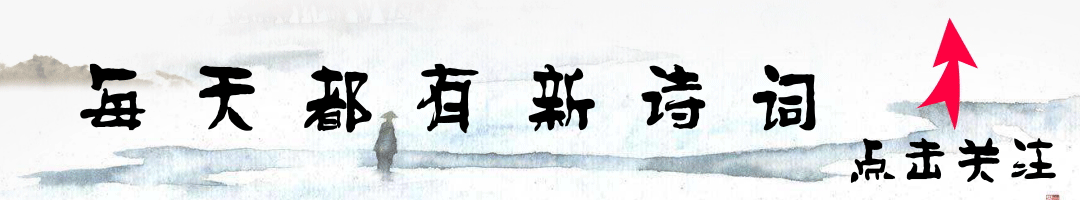 每天都有新诗词
点击关注